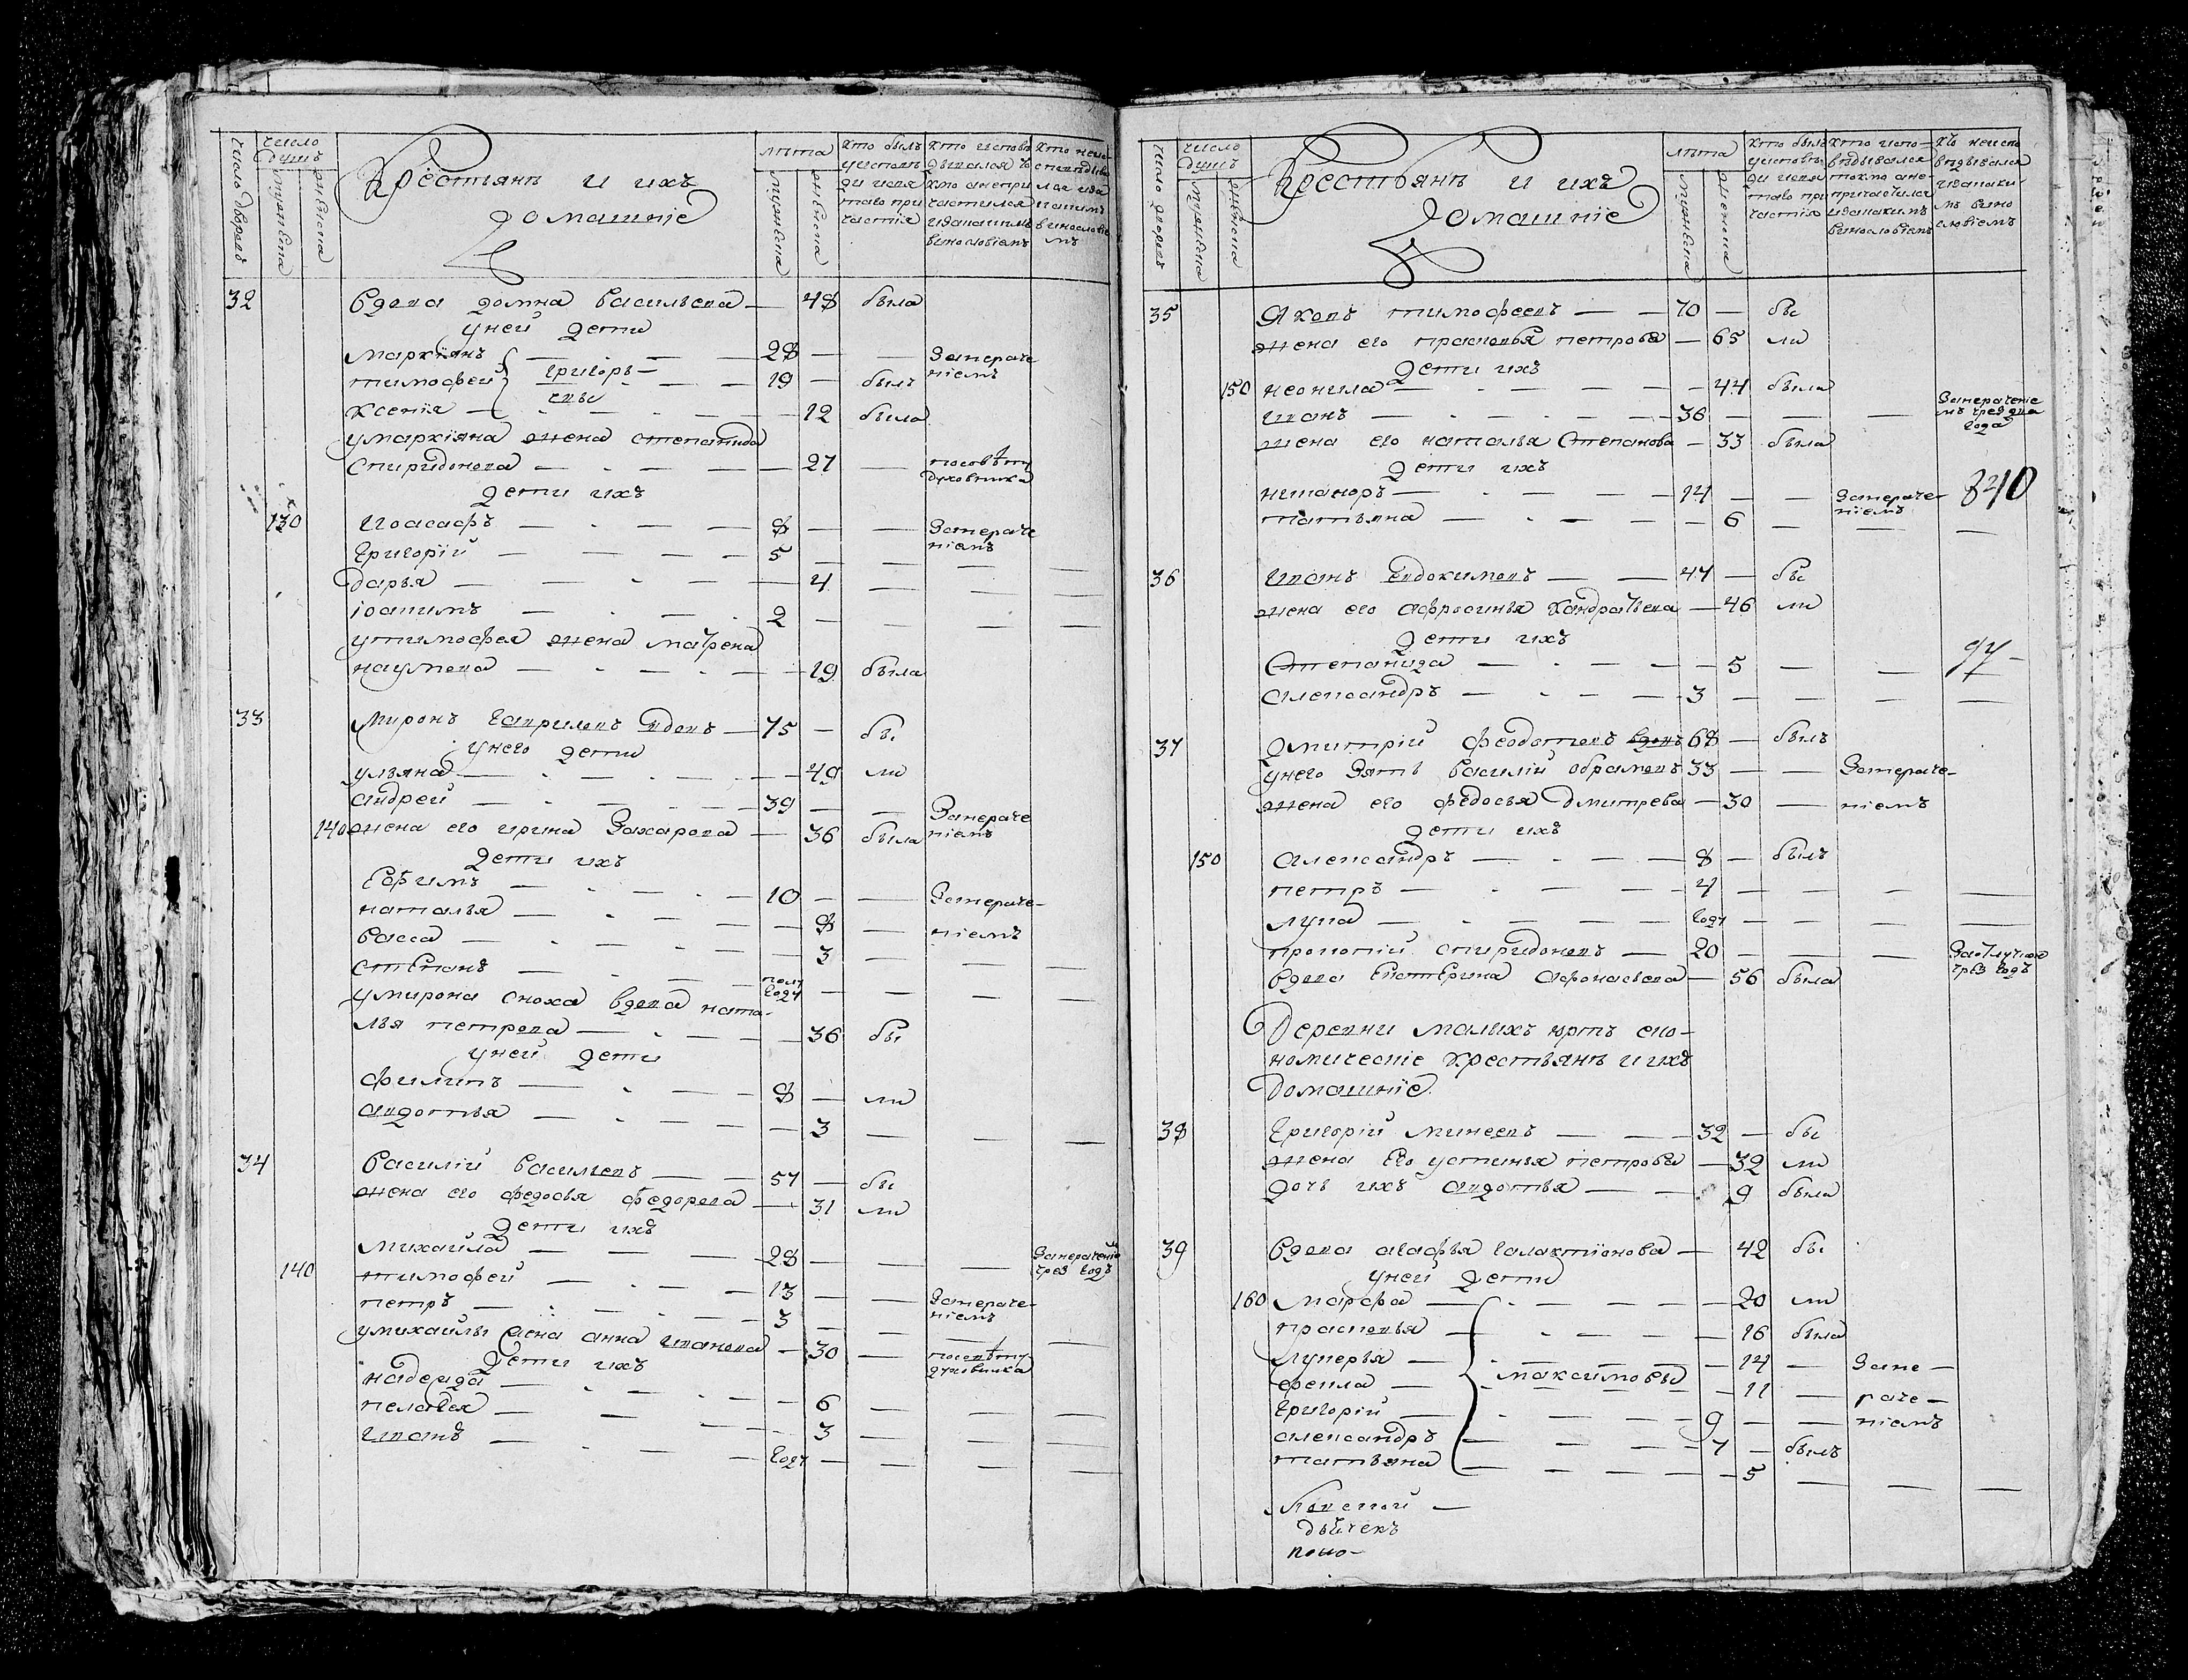 число дворовъ
число душъ
мужеска
женска
Крестьянѣ и ихъ
домашніе
лѣта
мужеска
женска
кто былъ
у исповѣ
ди и свя
таго при
частія
кто исповѣ
дывался
кто а не при
частился
и за какимъ
винословіемъ
кто не ис
повѣдыва
лся и за
какимъ
винословіе
мъ
32 вдова домна васильева — 48 была
у ней дети
маркіянъ — 28 — — Занераче
ніемъ
тимофей григорь — 19 — былъ
евы
ксенія — 12 была
у маркіяна жена степанида
спиридонова — 27 — посовѣту
духовника
дети ихъ
130 Иоасафъ — 8 — — Занераче
ніемъ
Григорій — 5 — — — —
дарья — 4 — — —
іоакимъ — 2 — — — —
у тимофея жена матрена
наумова — 19 была
33 Миронъ Гаврилов вдовъ — 75 — бы
у него дети
ульяна — 49 ли
андрей — 39 — — Занераче
ніемъ
140 жена его ирина Захарова — 36 была
дети ихъ
Ефимъ — 10 — — Занераче-
наталья — 8 — ніемъ
васса — 3 — — —
степанъ — полу
году — — — —
у мирона сноха вдова ната-
лья петрова — 36 бы
у ней дети
филипъ — 8 — ли
авдотья — 3 — — —
34 Василій Васильевъ — 57 — бы
жена его федосья федорова — 31 ли
дети ихъ
михаила — 28 — — — Занерачение
чрез годъ
140 тимофей — 13 — — Занераче-
ніемъ
петръ — 3 — — — —
у михайлы жена анна иванова — 30 — посовѣту
духовника
дети ихъ
надежда — 6 — — —
пелагея — 3 — — —
иванъ — году — — — —
число дворовъ
число
душъ
мужеска
женска
Крестьянѣ и ихъ
домашніе
лѣта
мужеска
женска
кто былъ
у исповѣ
ди и свя
таго при
частія
кто испо-
вѣдывался
токмо а не
причастился
и за какимъ
винословіемъ
кто не испо
вѣдывался
и за каки
мъ вино
словіемъ
35 Яковъ тимофеевъ — 70 — бы
жена его прасковья петрова — 65 ли
дети ихъ
150 неонила — 44 была
иванъ — 36 — — — Занерачение
мъ чрез два
года
жена его наталья степанова — 33 была
дети ихъ
никаноръ — 14 — — Занераче-
ніемъ
840
татьяна — 6 — — —
36 иванъ евдокимовъ — 47 — бы
жена его афросинья кандратьева — 46 ли
дети ихъ
степанида — 5 — — —
97
александръ — 3 — — — —
37 Дмитрій феодотовъ вдовъ 68 — былъ
у него зять василій абрамовъ 33 — — Занераче-
жена его федосья дмитрева — 30 — ніемъ
дети ихъ
150 александръ — 8 — былъ
петръ — 4 — — — —
лука — году — — — —
прокопій спиридоновъ — 20 — — —
чрез годъ
вдова екатерина афонасьева — 56 была
Деревни малыхъ юртъ еко-
номическіе крестьянѣ и ихъ
домашніе.
38 Григорій минеевъ — 32 — бы
жена его устинья петрова — 32 ли
дочь ихъ авдотья — 9 была
39 вдова агафья галактіонова — 42 бы
у ней дети
160 марфа — 20 ли
прасковья — 16 была
лукерья — 14 — Зане-
максимовы
фекла — 11 — раче-
григорій — 9 — — ніемъ
александръ — 7 — былъ
татьяна — 5 — — —